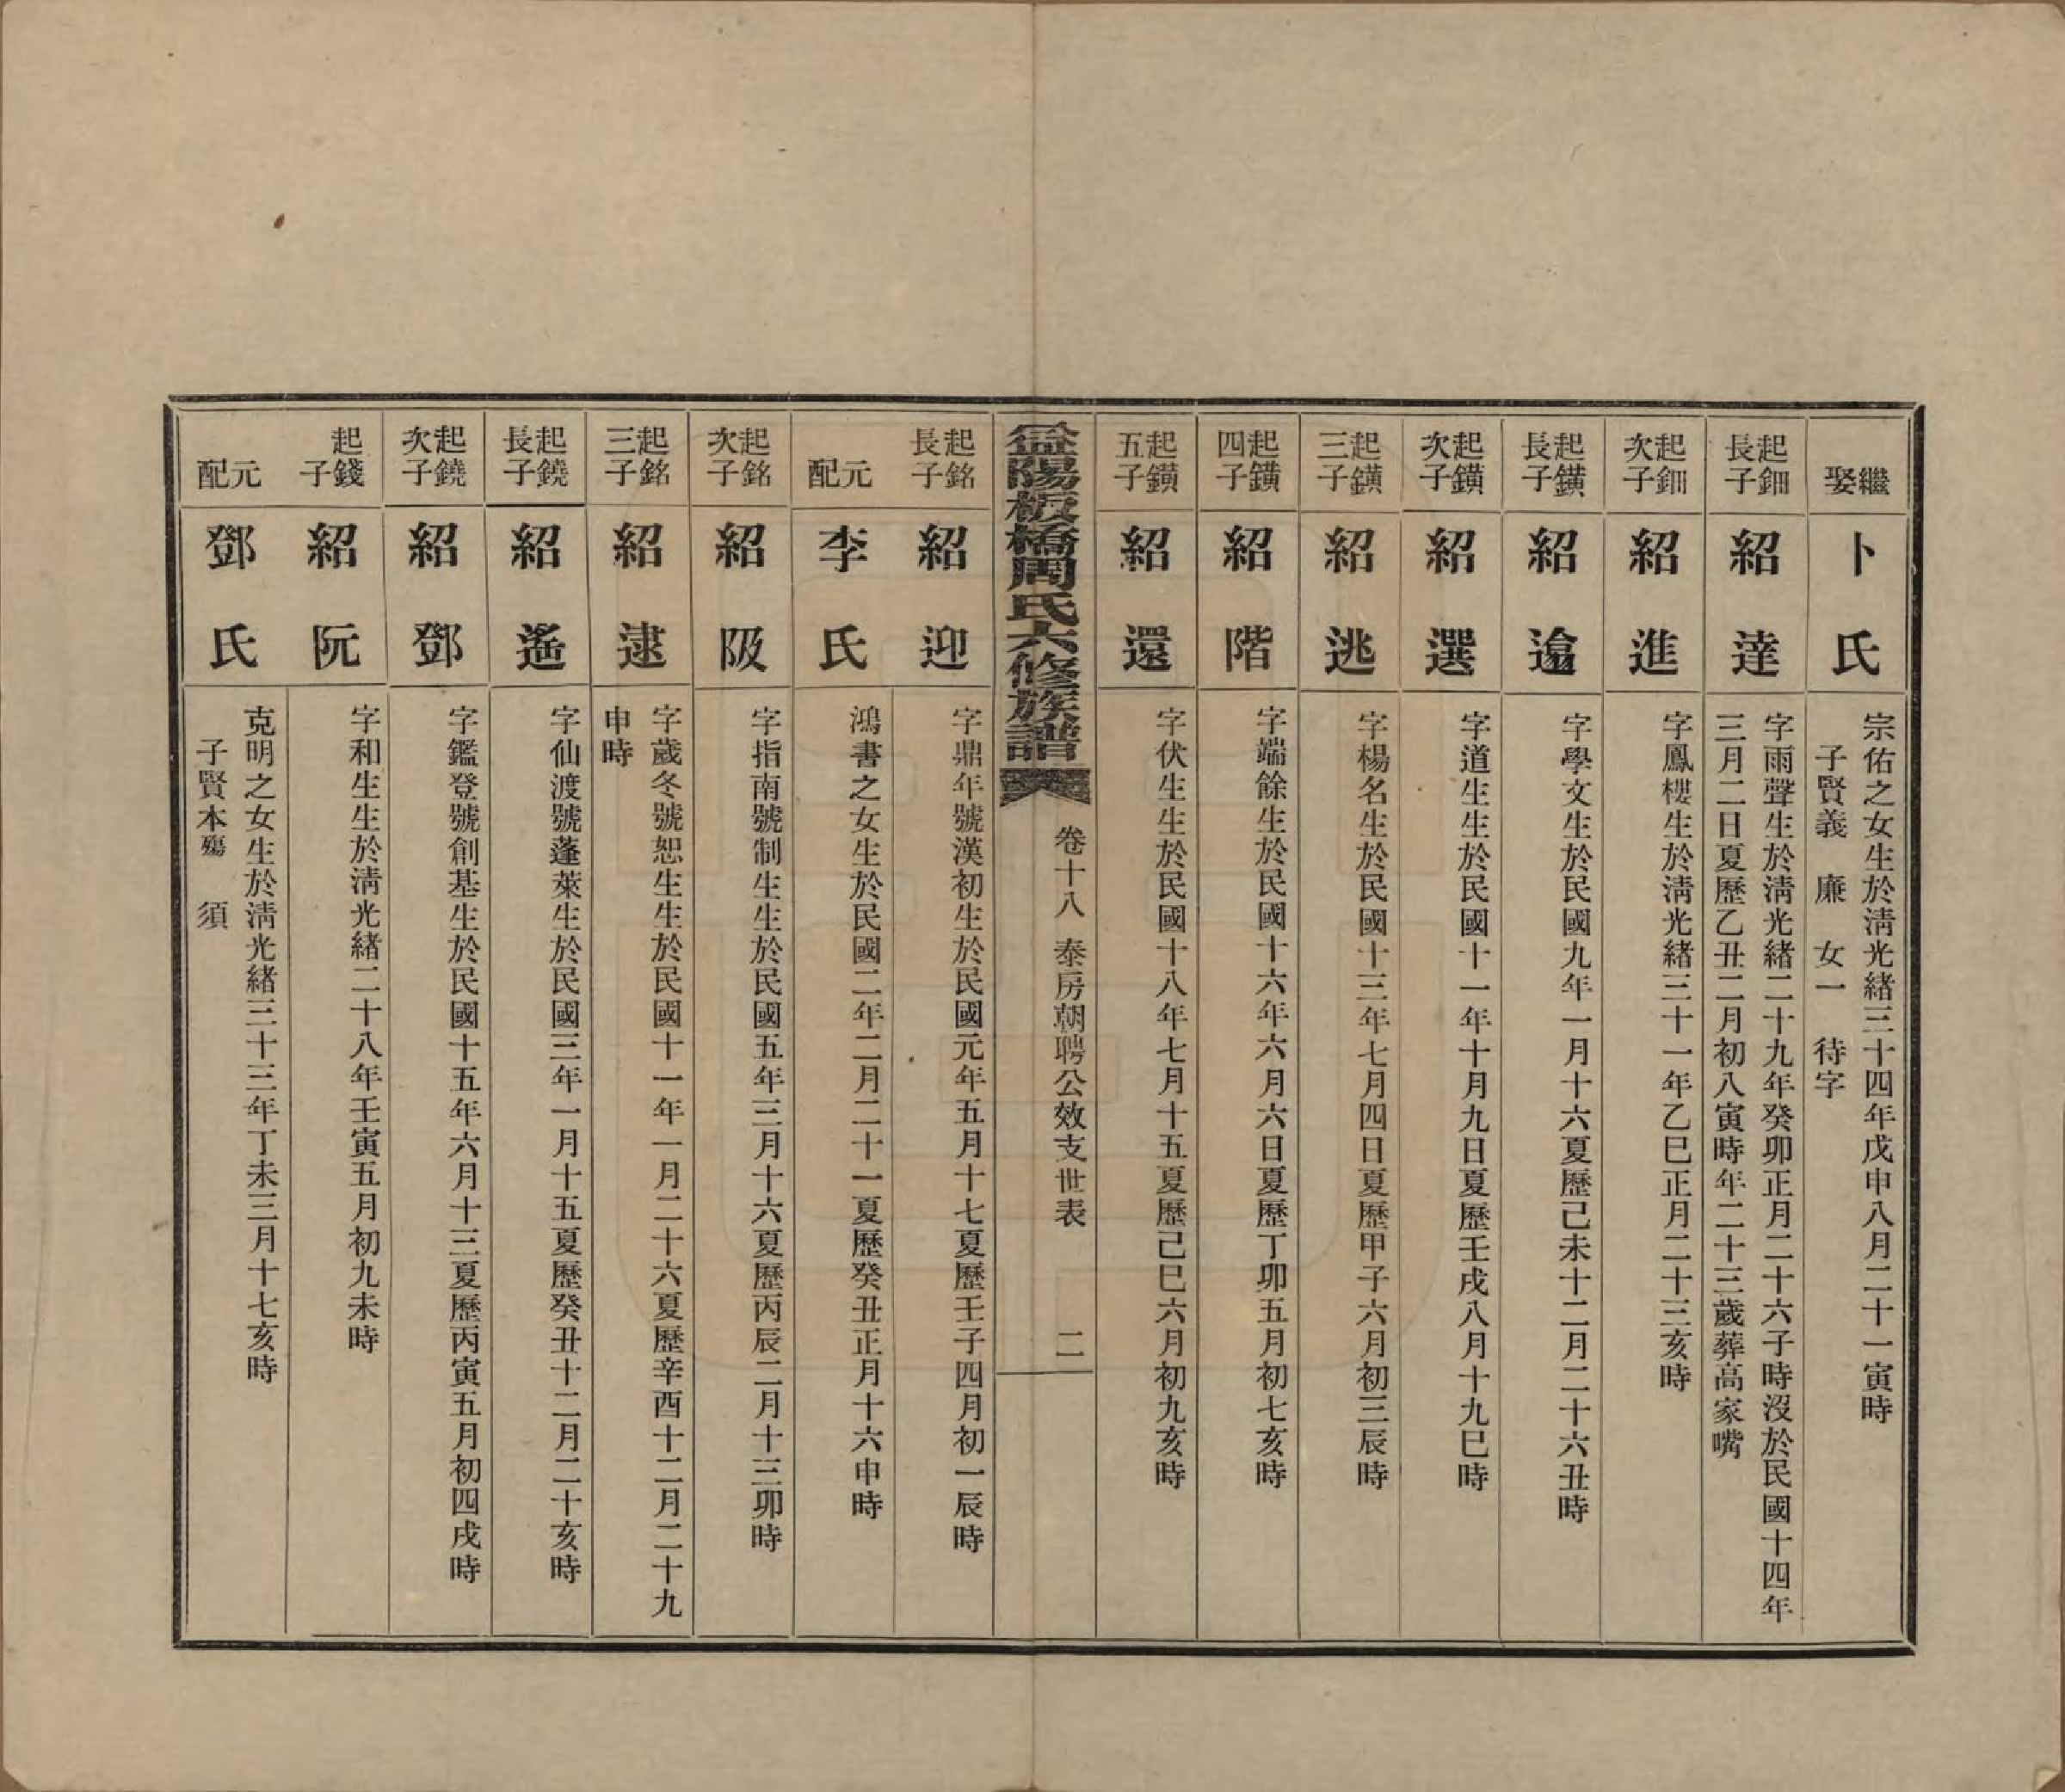 繼娶
卜氏
宗佑之女生於清光緒三十四年戊申八月二十一寅時
子賢義　廉　女一　待字
起鈿長子
紹達
字雨聲生於清光緒二十九年癸卯正月二十六子時沒於民國十四年
三月二日夏歷乙丑二月初八寅時年二十三歲葬高家嘴
起鈿次子
紹進
字鳳樓生於清光緒三十一年乙巳正月二十三亥時
起鐄長子
紹逾
字學文生於民國九年一月十六夏歷己未十二月二十六丑時
起鐄次子
紹選
字道生生於民國十一年十月九日夏歷壬戌八月十九巳時
起鐄三子
紹逃
字楊名生於民國十三年七月四日夏歷甲子六月初三辰時
起鐄四子
紹階
字端餘生於民國十六年六月六日夏歷丁卯五月初七亥時
起鐄五子
紹還
字伏生生於民國十八年七月十五夏歷己巳六月初九亥時
益陽板橋周氏六修族譜
卷十八　泰房朝聘公效支世表　二
起銘長子
紹迎
字鼎年號漢初生於民國元年五月十七夏歷壬子四月初一辰時
元配
李氏
鴻書之女生於民國二年二月二十一夏歷癸丑正月十六申時
起銘次子
紹阪
字指南號制生生於民國五年三月十六夏歷丙辰二月十三卯時
起銘三子
紹逮
字歲冬號恕生生於民國十一年一月二十六夏歷辛酉十二月二十九
申時
起鐃長子
紹遙
字仙渡號蓬萊生於民國三年一月十五夏歷癸丑十二月二十亥時
起鐃次子
紹鄧
字鑑登號創基生於民國十五年六月十三夏歷丙寅五月初四戌時
起錢子
紹阮
字和生生於清光緒二十八年壬寅五月初九未時
元配
鄧氏
克明之女生於清光緒三十三年丁未三月十七亥時
子賢本殤　須